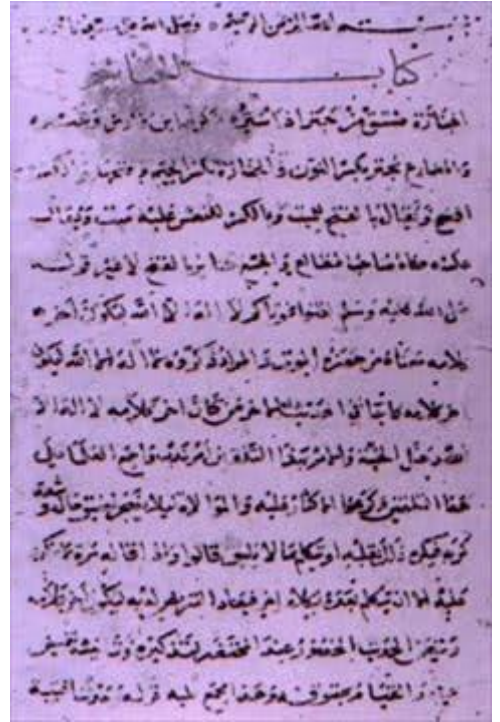 بسم الله الرحمن الرحيم وصلى الله على
كتاب الجنائز
الجنازة مشتقة من جنز اذا ستر ذكره ابن فارس وغيره
والمضارع يجنز بكسر النون والجنازة بكسر الجيم وفتحها والكسر
افصح ويقال بالفتح للميت وبالكسر للنعش عليه ميت ويقال
عكسه حكاه صاحب المطالع والجمع جنائز بالفتح لا غير قوله
صلى الله عليه وسلم لقنوا موتاكم لا اله الا الله ليكون آخر
كلامه معناه من حضره الموت والمراد ذكروه لا اله الا الله ليكون
اخر كلامه كما في الحديث من كان اخر كلامه لا اله الا
الله دخل الجنة والامر بهذا التلقين امر ندب واجمع العلماء على
هذا التلقين وكرهوا الاكثار عليه والموالاة ليلا يضجر بضيق حاله وشدة
كربه فيكره ذلك بقلبه او يتكلم بما لا يليق قالوا واذا قاله مرة لا يكرر
عليه الا ان يتكلم بعده بكلام اخر فيعاد التعريض له به ليكون آخر كلامه
ويتضمن الحديث الحضور عند المحتضر لتذكيره وتانيسه وتغميض
عينيه والقيام بحقوقه وهذا مجمع عليه قوله حدثنا قتيبة